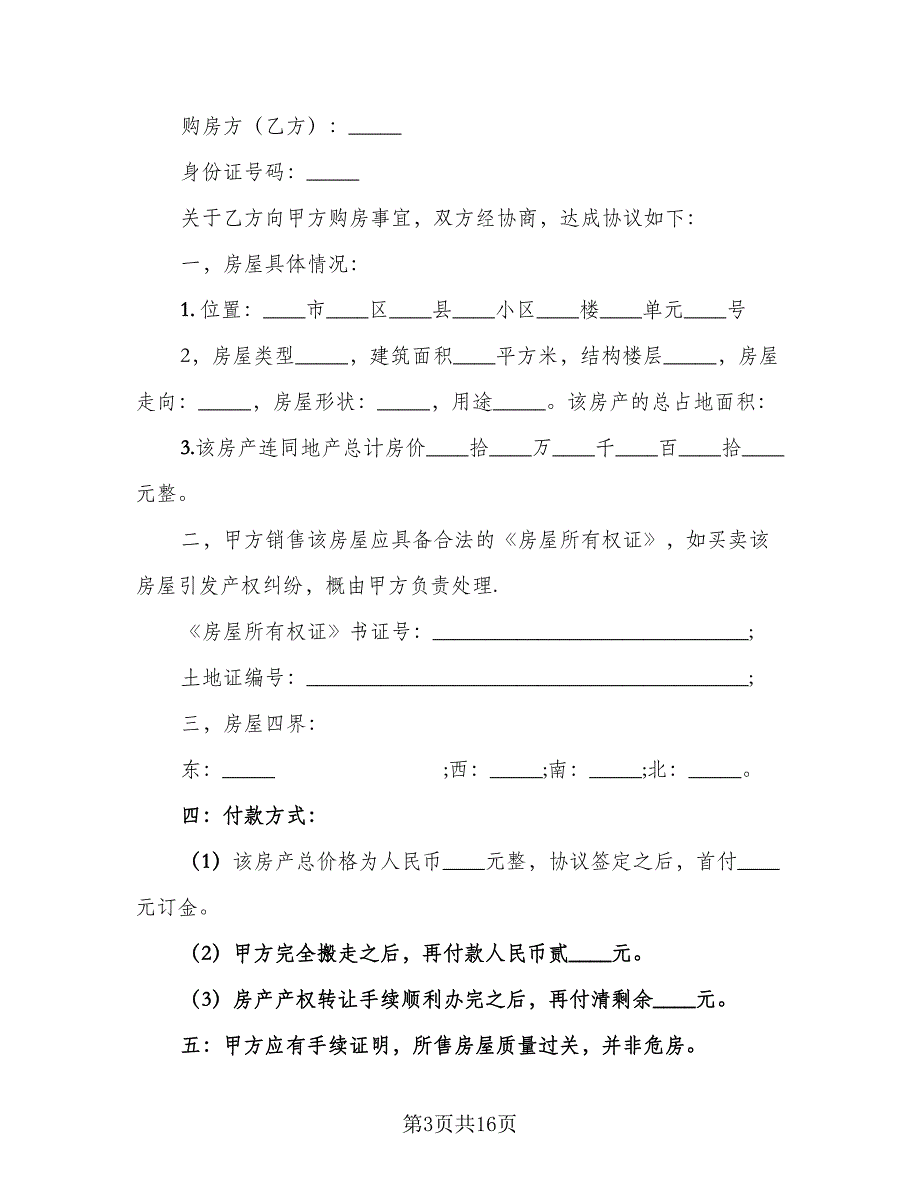 购房方（乙方）：_____
身份证号码：_____
关于乙方向甲方购房事宜，双方经协商，达成协议如下：
一，房屋具体情况：
1. 位置：____市____区____县____小区____楼____单元____号
2，房屋类型_____，建筑面积____平方米，结构楼层_____，房屋
走向：_____，房屋形状：_____，用途_____。该房产的总占地面积：
3.该房产连同地产总计房价____拾____万____千____百____拾____
元整。
二，甲方销售该房屋应具备合法的《房屋所有权证》，如买卖该
房屋引发产权纠纷，概由甲方负责处理.
《房屋所有权证》书证号：______________________________;
土地证编号：__________________________________________;
三，房屋四界：
东：_____ ;西：_____;南：_____;北：_____。
四：付款方式：
（1）该房产总价格为人民币____元整，协议签定之后，首付____
元订金。
（2）甲方完全搬走之后，再付款人民币贰____元。
（3）房产产权转让手续顺利办完之后，再付清剩余____元。
五：甲方应有手续证明，所售房屋质量过关，并非危房。
第3页共16页